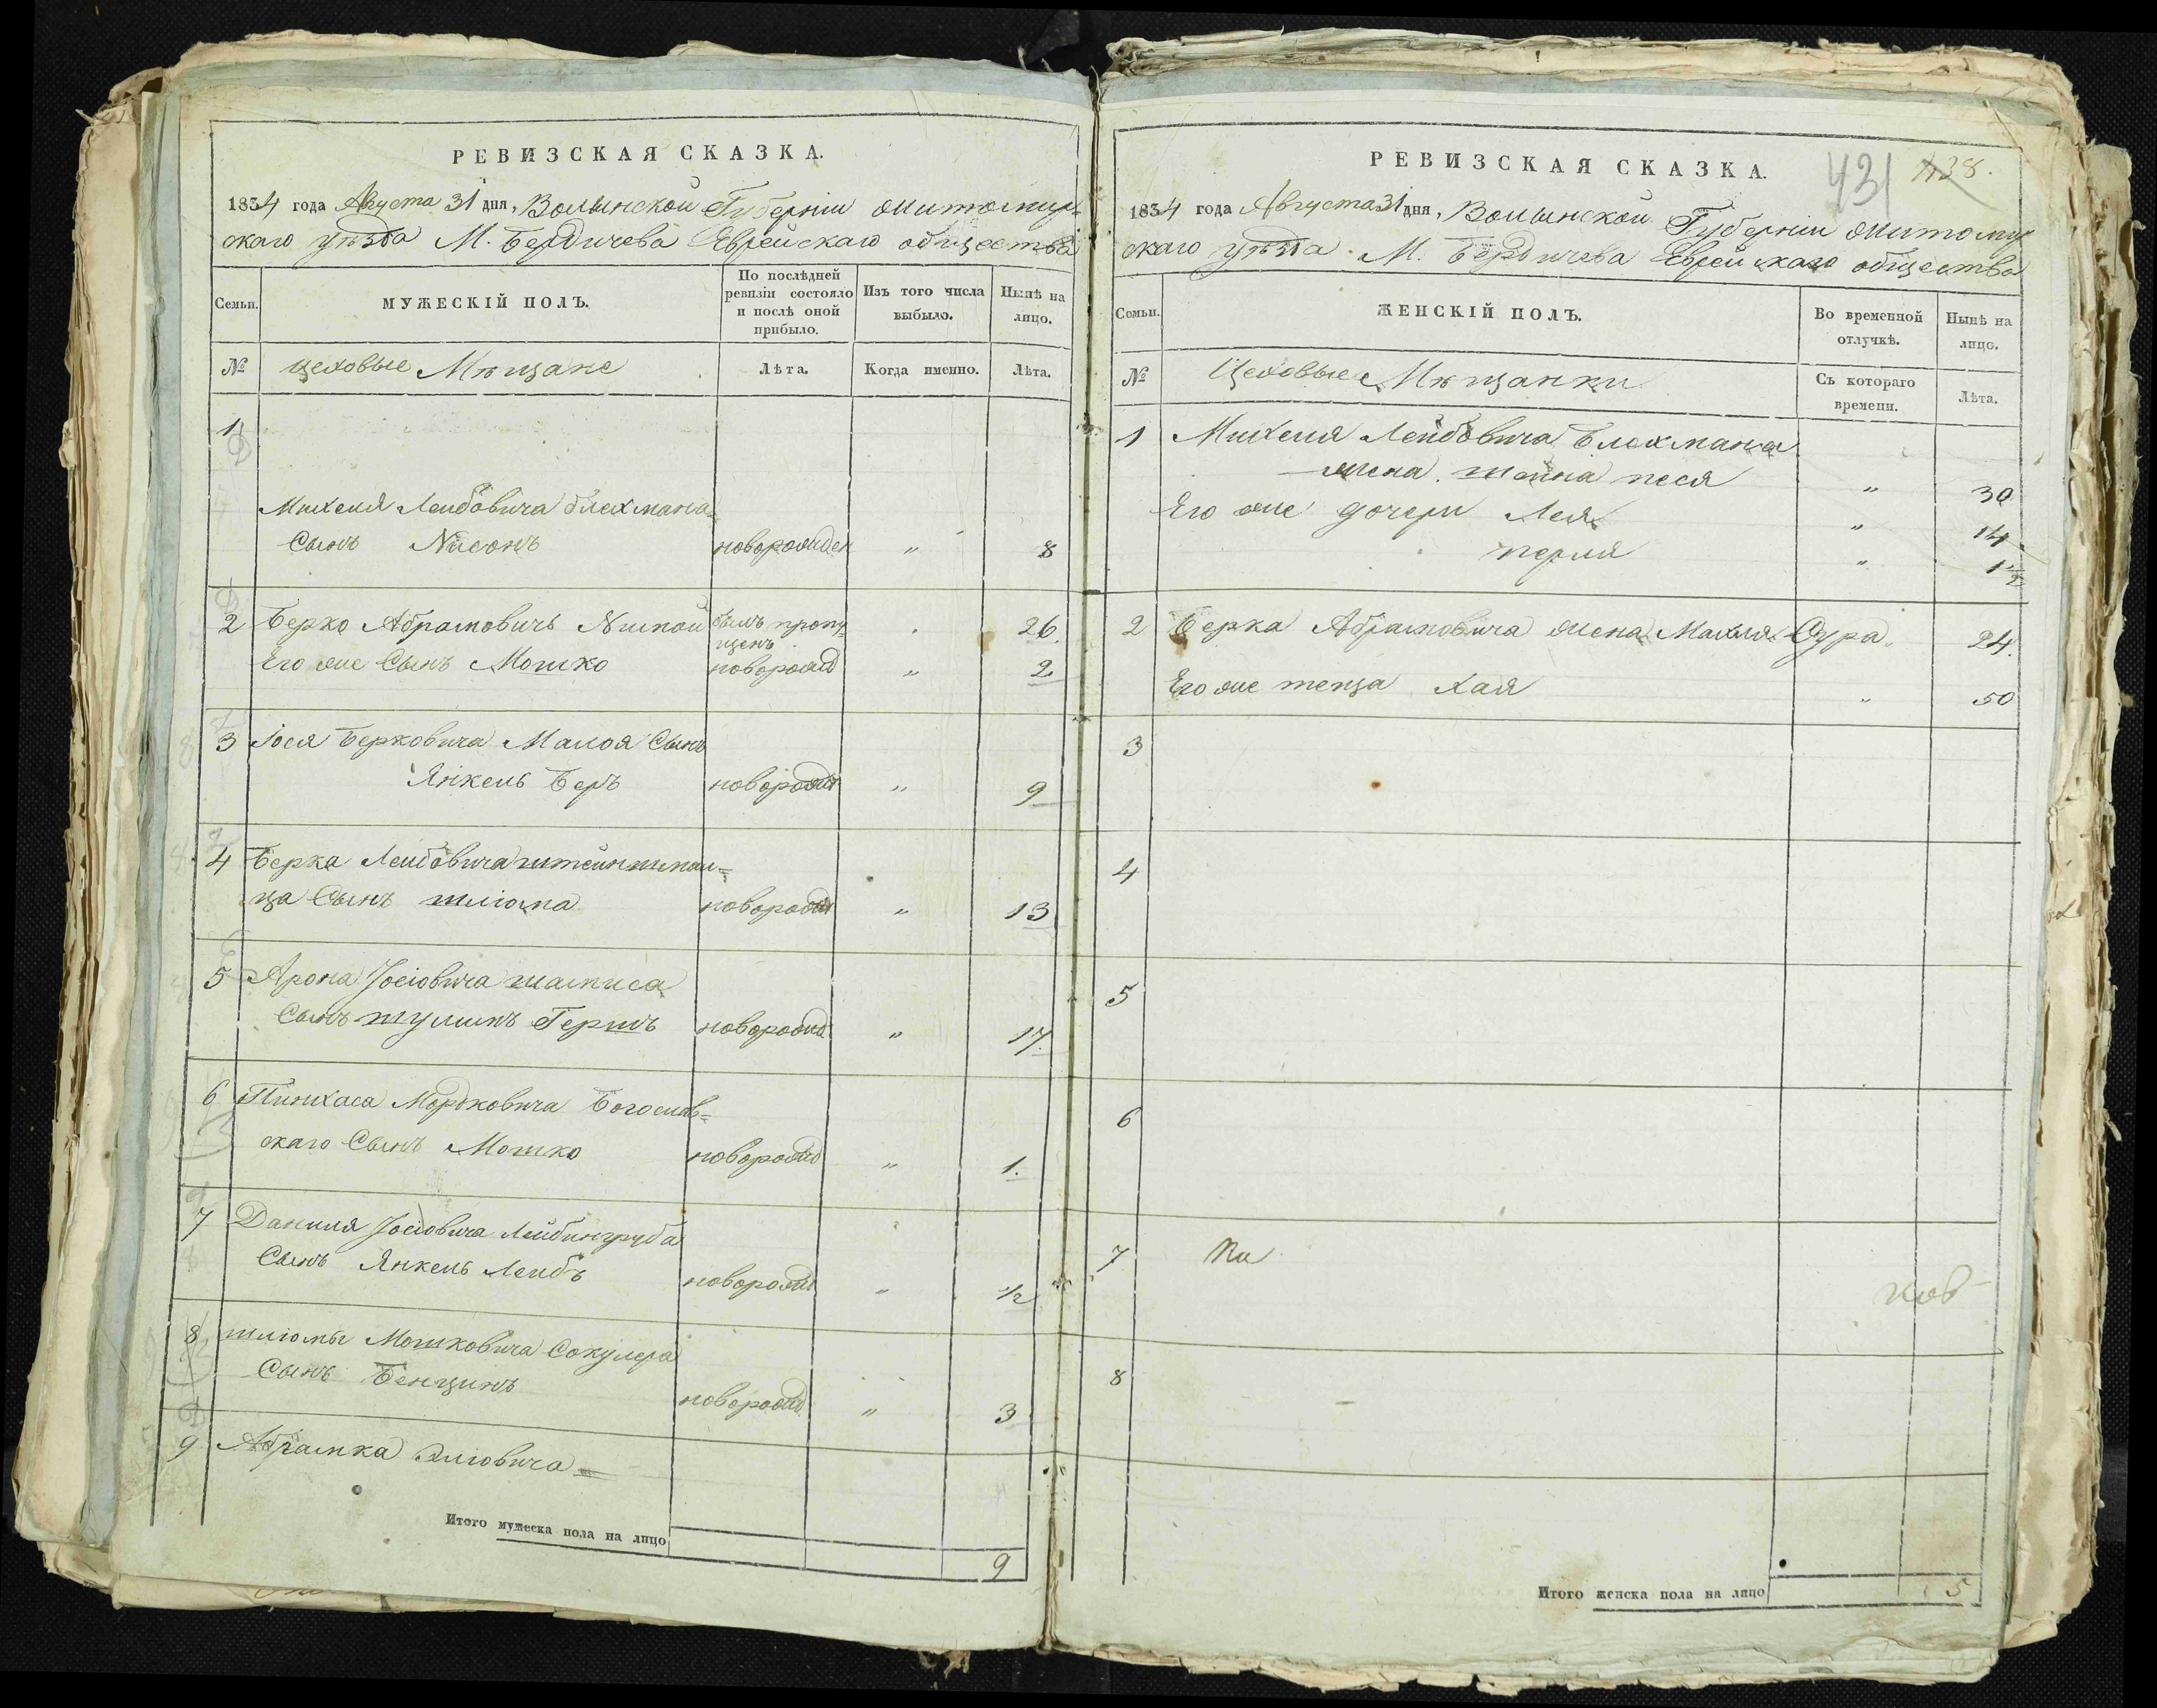 РЕВИЗСКАЯ СКАЗКА.
1834 года Августа 31 дня, Волынской Губерніи Житомир-
скаго уѣзда М. Бердичева Еврейскаго общества
Семьи.
МУЖЕСКІЙ ПОЛЪ.
По послѣдней
ревизіи состояло
и послѣ оной
прибыло.
Изъ того числа
выбыло.
Нынѣ на
лицо.
№
цеховые Мѣщане
Лѣта.
Когда именно.
Лѣта.
1
Михеля Лейбовича Блехмана
Сынъ Нисонъ новорожден " 8
2 Берко Абрамовичъ былъ пропу-
щенъ 26.
Его же Сынъ Мошко новорожд " 2
3 Іося Берковича Малоя Сынъ
Янкель Беръ новорожд " 9
4 Берка Лейбовича
ца Сынъ шліома новорожд " 13
5 Арона Іосіовича
Сынъ шулимъ Гершъ новорожд " 17.
6 Пинхаса Мордковича Богослав=
скаго Сынъ Мошко новорожд " 1.
7 Даниля Іосіовича
Сынъ Янкель Лейбъ новорожд " ½
8 шліомы Мошковича Сокулера
Сынъ Бенционъ новорожд " 3
9 Абрамка Эліовича
Итого мужеска пола на лицо 9
РЕВИЗСКАЯ СКАЗКА.
431 1138.
1834 года Августа 31 дня, Волынской Губерніи Житомир
скаго уѣзда М. Бердичева Еврейскаго общества
Семьи.
ЖЕНСКІЙ ПОЛЪ.
Во временной
отлучкѣ.
Нынѣ на
лицо.
№
Цеховые Мѣщанки
Съ котораго
времени.
Лѣта.
1 Михеля Лейбовича Блехмана
жена шейна песя " 30
Его же дочери Лея " 14
перля " 1½
2 Берка Абрамовича жена Махля Сура 24.
Его же теща Хая " 50
3
4
5
6
7
8
Итого женска пола на лицо 5